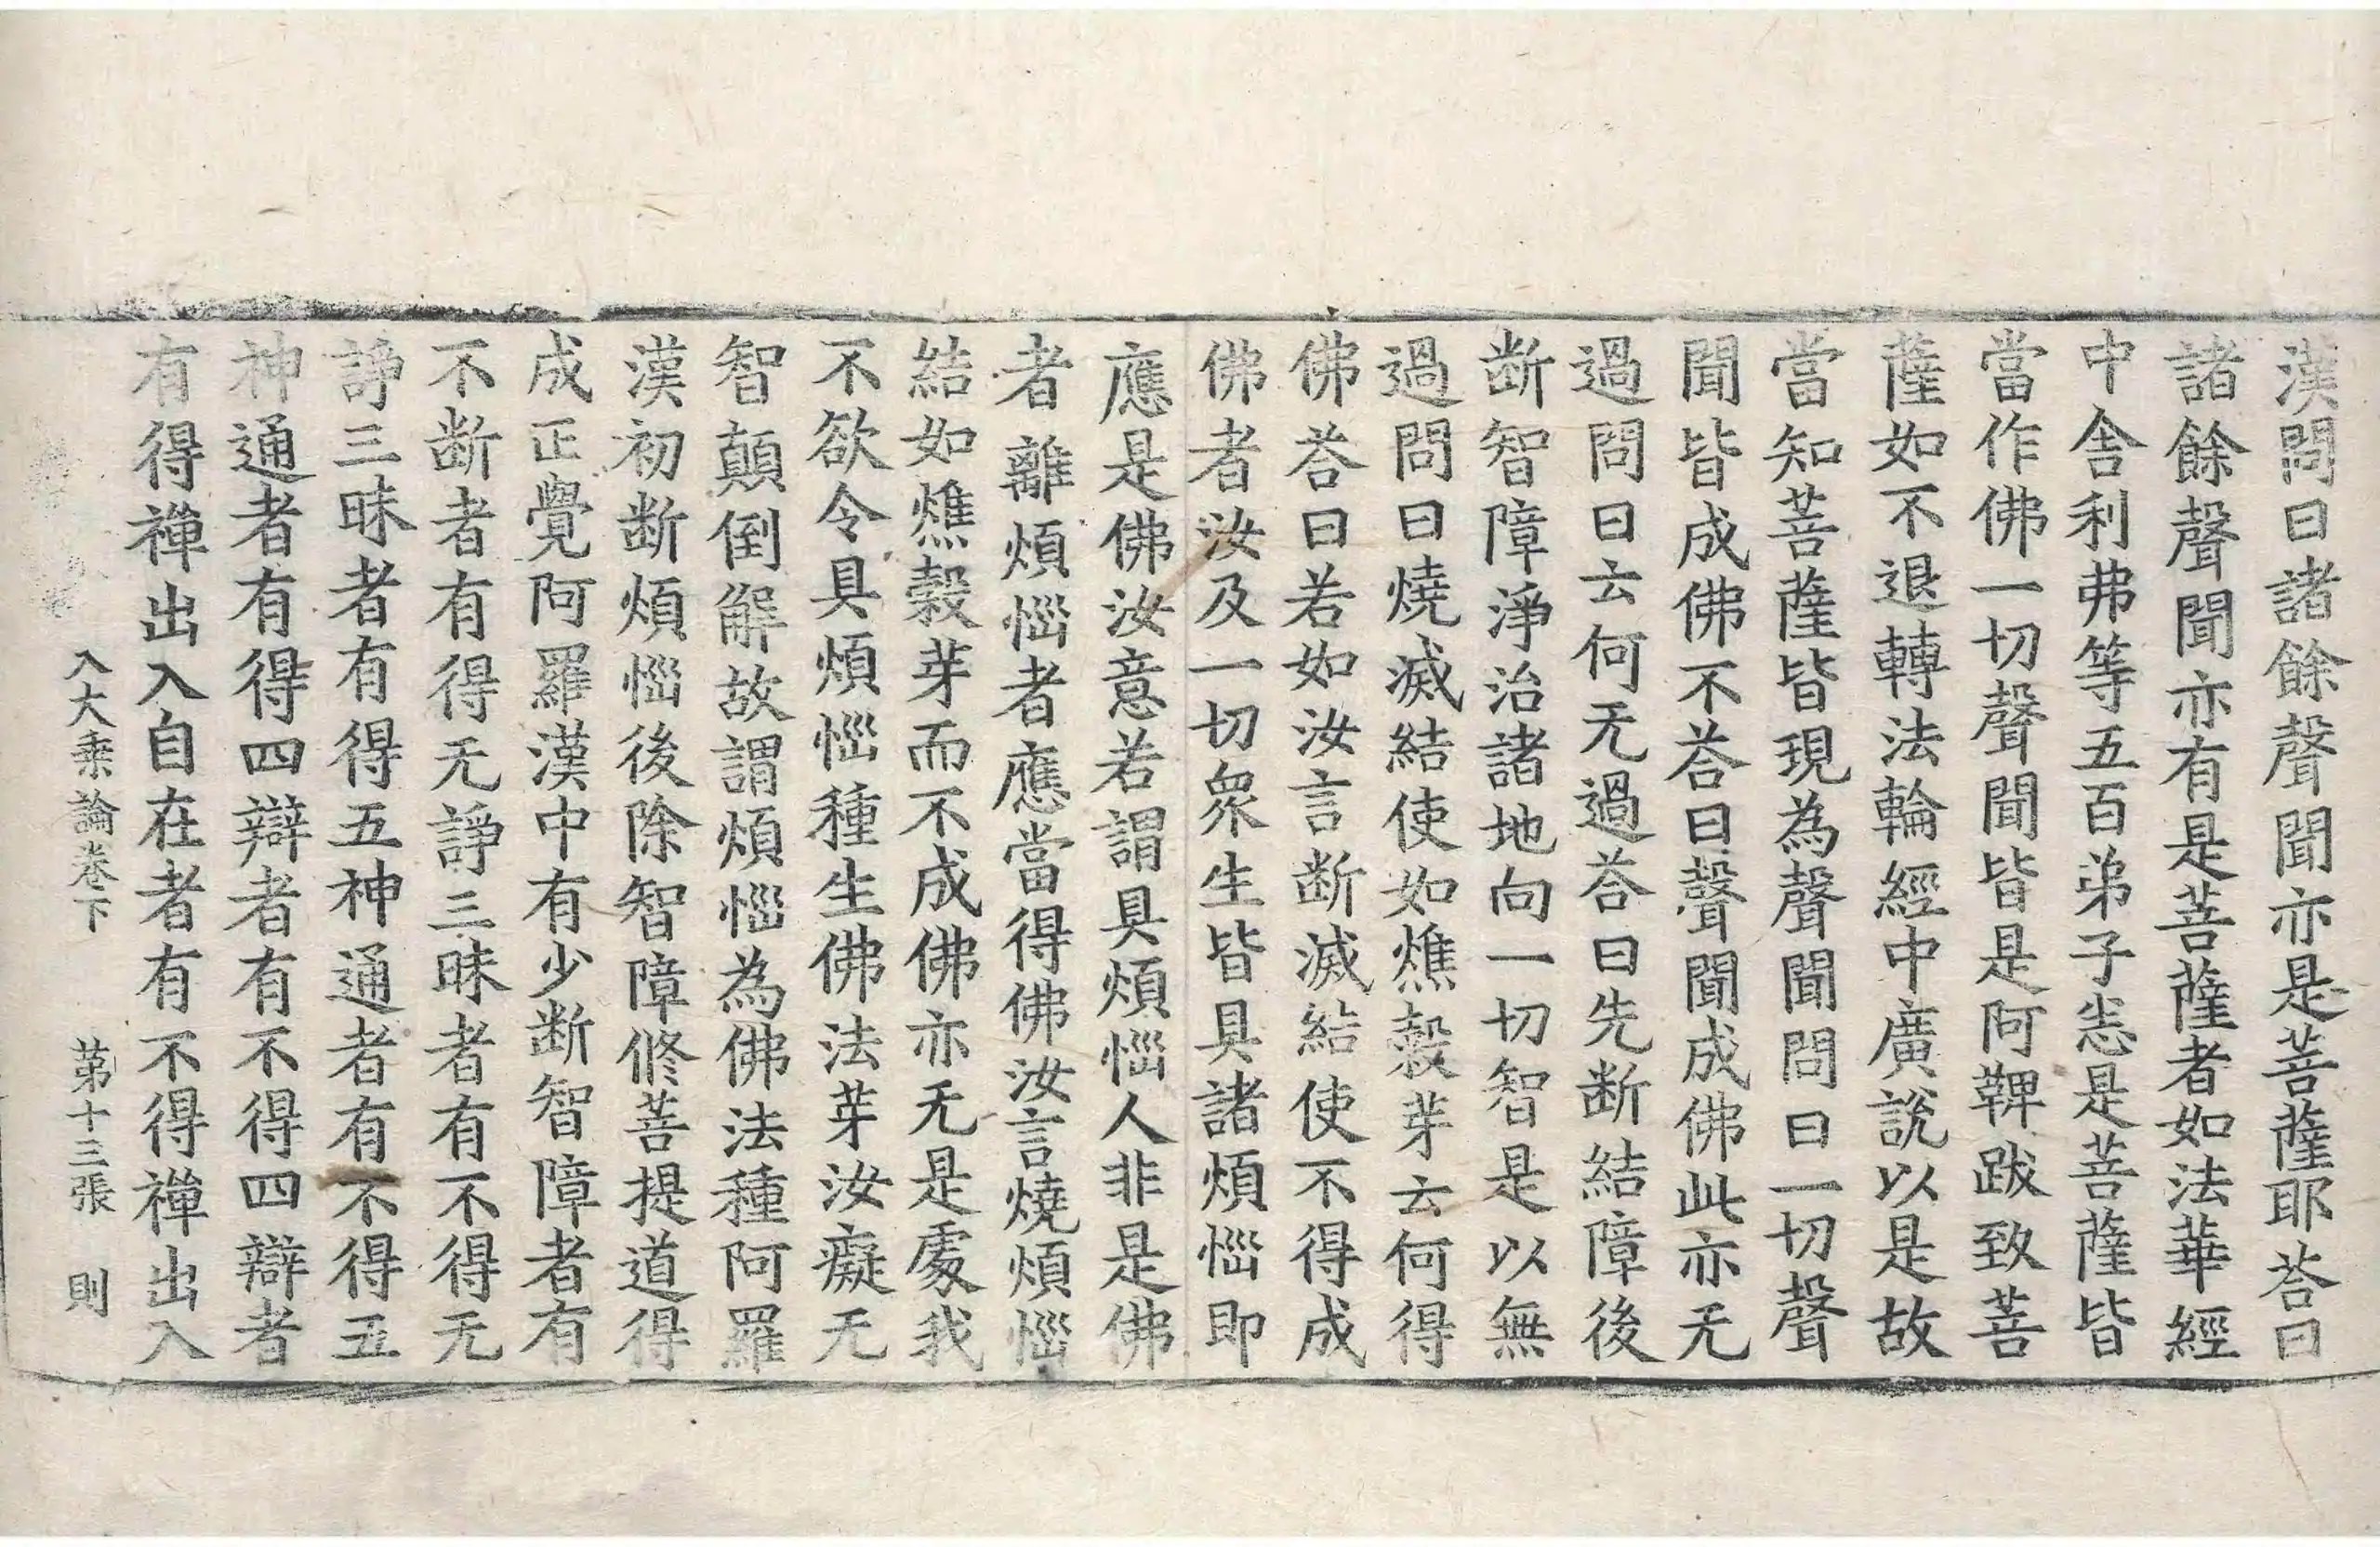 漢問曰諸餘聲聞亦是菩薩耶荅曰
諸餘聲聞亦有是菩薩者如法華經
中舍利弗等五百弟子恙是菩薩皆
當作佛一切聲聞皆是阿鞞跋致菩
薩如不退轉法輪經中廣說以是故
當知菩薩皆現為聲聞問曰一切聲
聞皆成佛不荅曰聲聞成佛此亦无
過問曰云何无過荅曰先断結障後
断智障淨治諸地向一切智是以無
過問曰燒滅結使如燋糓芽云何得
佛荅曰若如汝言断滅結使不得成
佛者汝及一切衆生皆具諸煩惱即
應是佛汝意若謂具煩惱人非是佛
者離煩惱者應當得佛汝言燒煩惱
結如燋糓芽而不成佛亦无是處我
不欲令具煩惱種生佛法芽汝癡无
智顛倒解故謂煩惱為佛法種阿羅
漢初断煩惱後除智障修菩提道得
成正覺阿羅漢中有少断智障者有
不断者有得无諍三昧者有不得无
諍三昧者有得五神通者有不得五
神通者有得四辯者有不得四辯者
有得禪出入自在者有不得禪出入
入大乘論卷下 第十三張 則